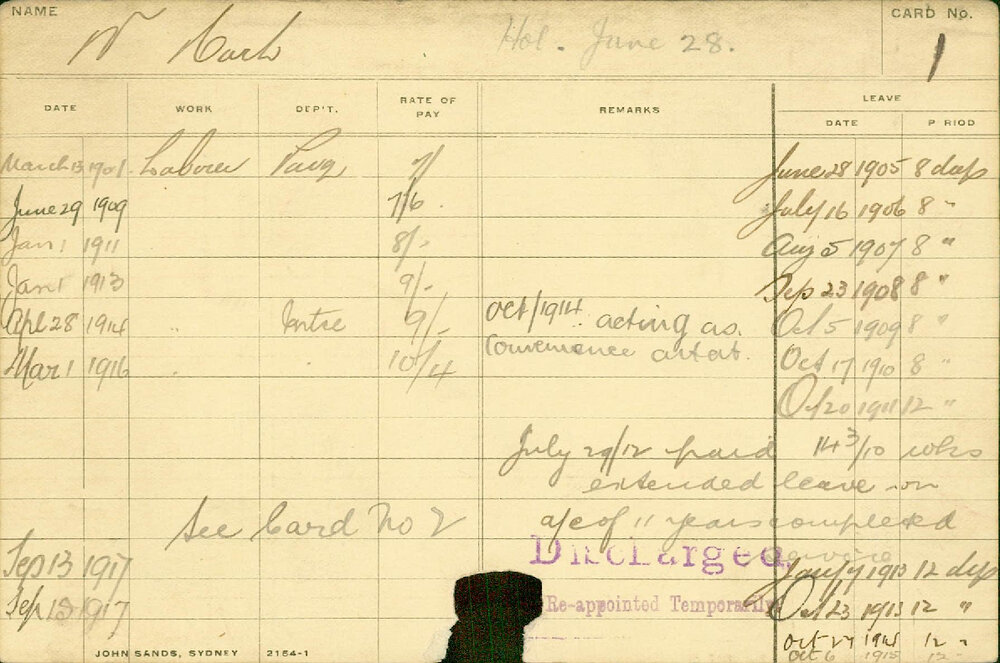 NAME CARD No.
W Hol. June 28. 1
DATE WORK DEP'T. RATE OF PAY REMARKS LEAVE
DATE P RIOD
March 13 1901. Laborer 7/ June 28 1905 8 days
June 29 1909 7/6 July 16 1906 8 "
Jan 1 1911 8/- Aug 5 1907 8 "
Jan 1 1913 9/- Sep 23 1908 8 "
Apl 28 1914 " 9/- Oct/1914 acting as Oct 5 1909 8 "
Mar 1 1916 10/4 Convenience Oct 17 1910 8 "
Oct 20 1911 12 "
July 29/12 paid 14 3/10 wks
extended leave on
See Card No 2 a/c of 11 years completed
Discharged, service
Sep 13 1917 Jany 7 1913 12 days
Sep 1917 Re-appointed Temporarily Oct 23 1913 12 "
Oct 27 1914 12 "
Oct 6 1915 12 "
JOHN SANDS, SYDNEY 2154-1